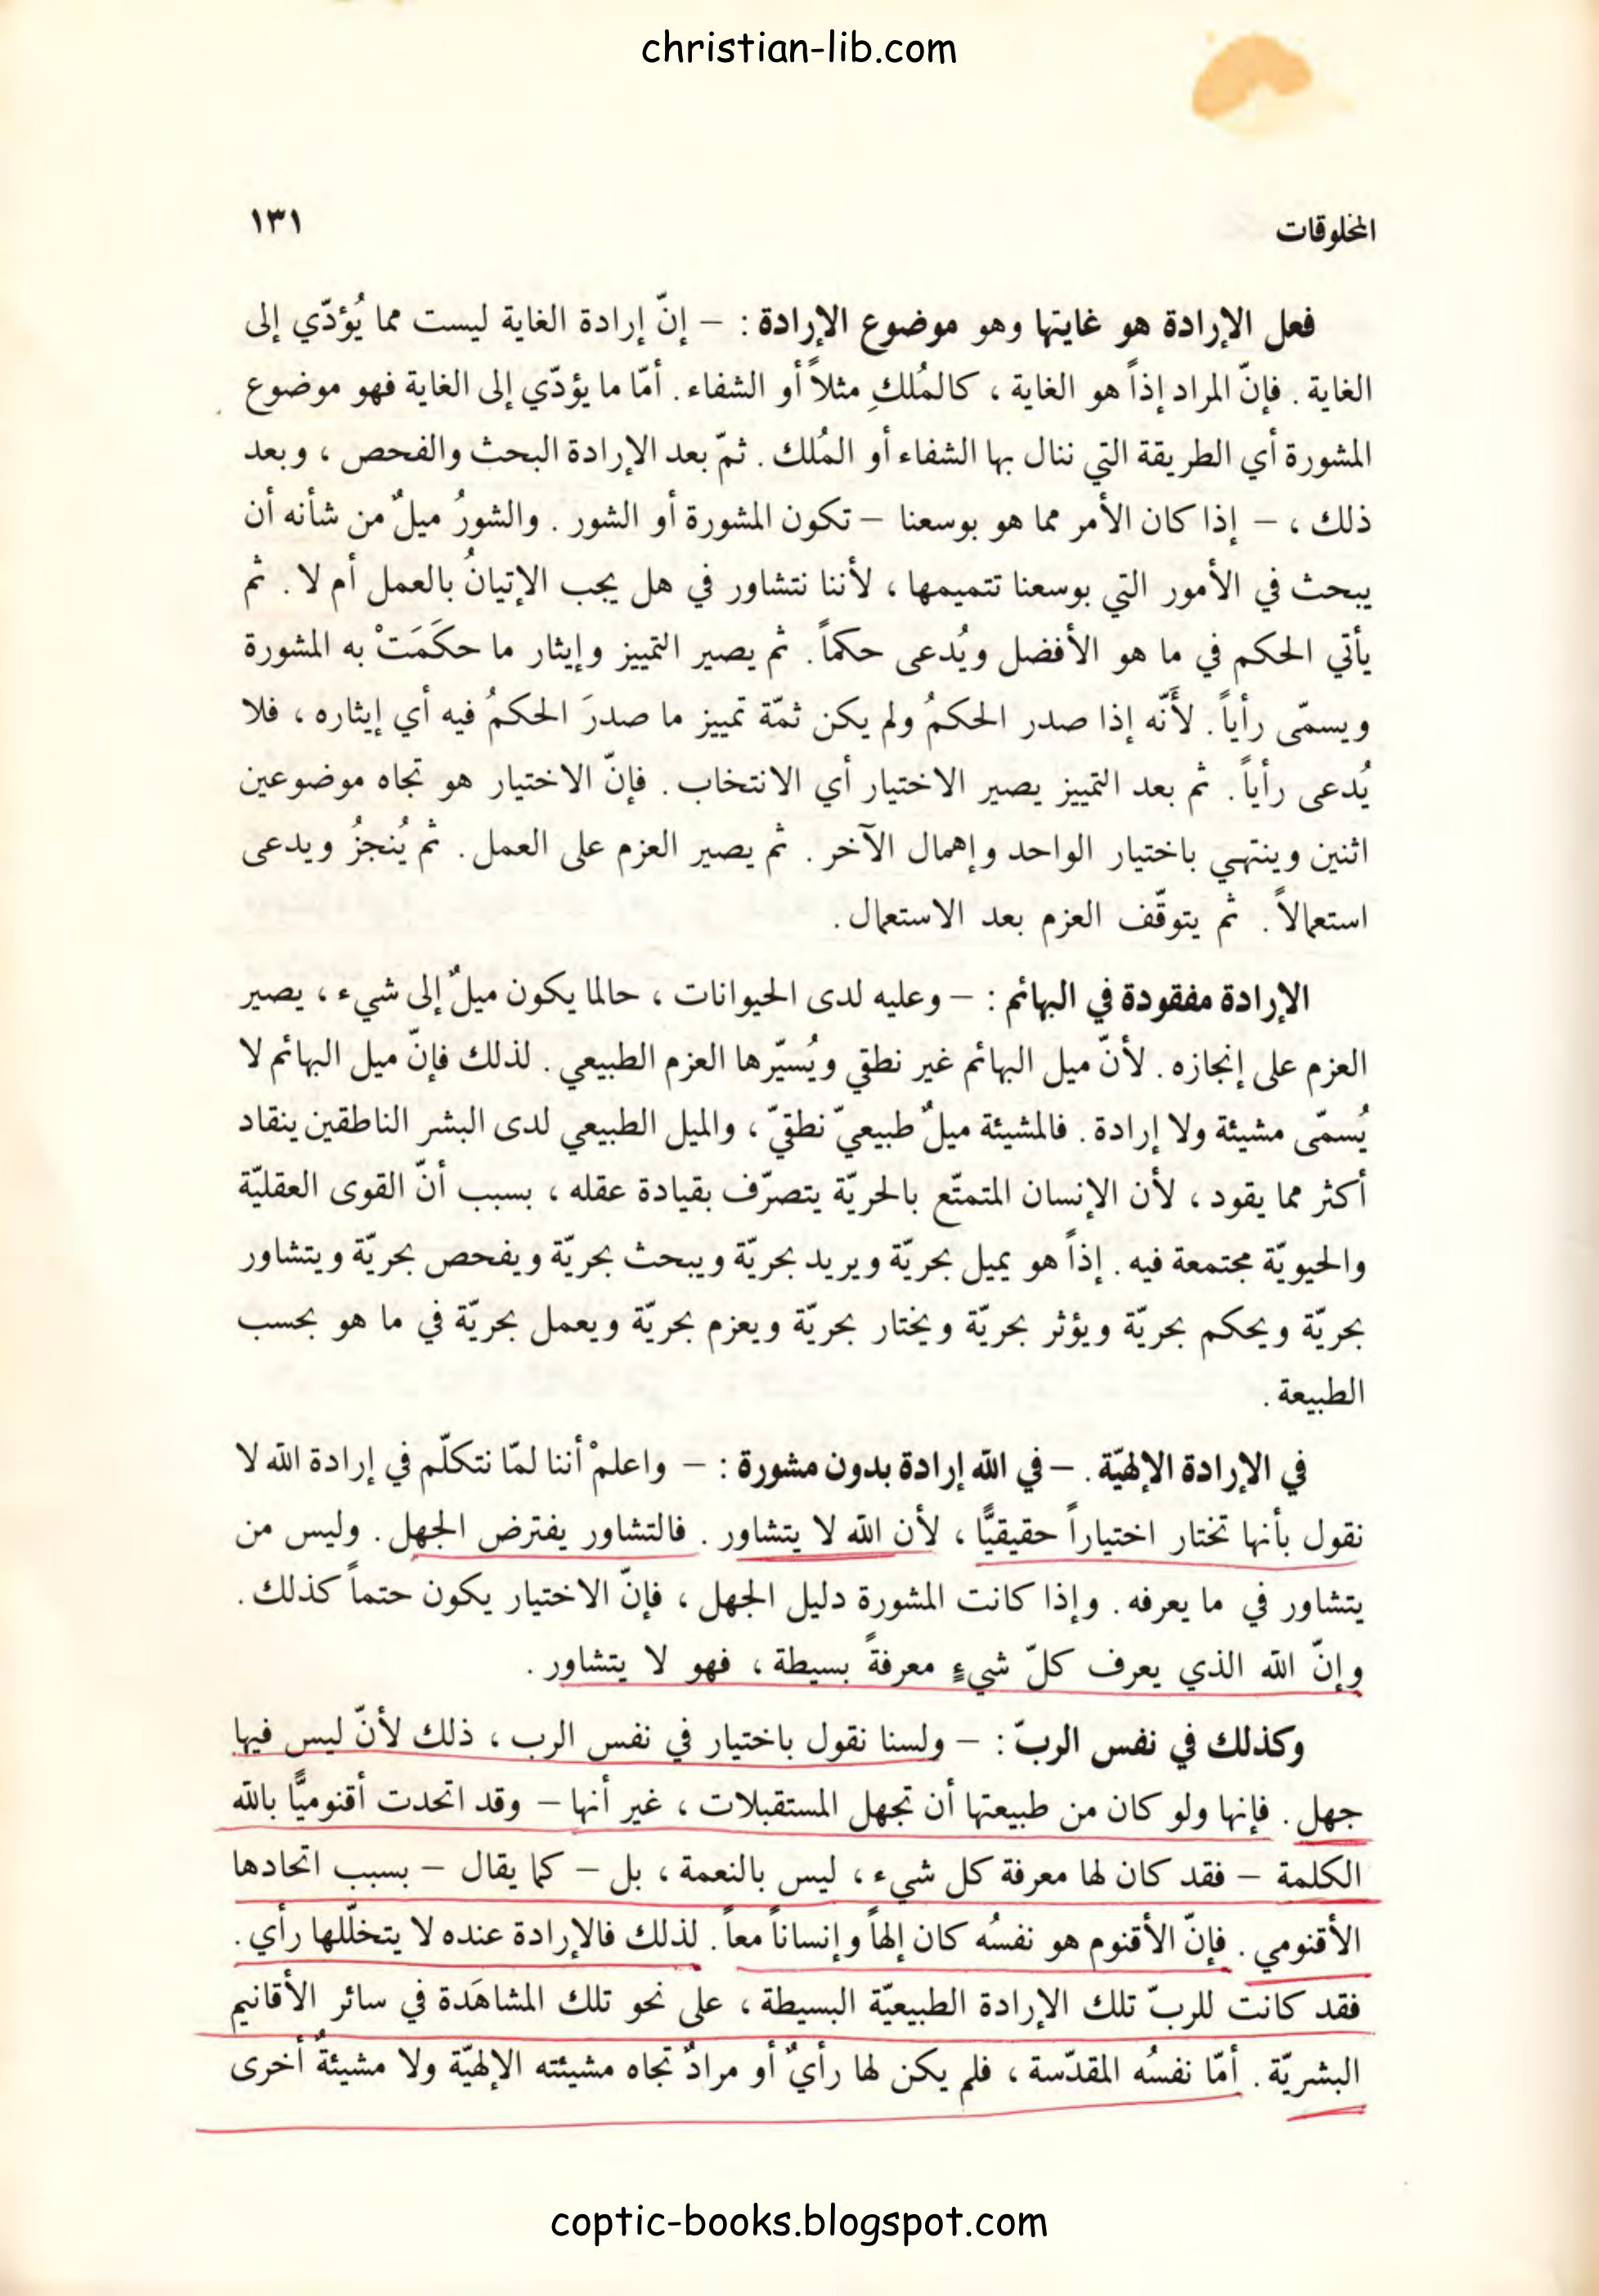 christian-lib.com
المخلوقات ١٣١
فعل الإرادة هو غايتها وهو موضوع الإرادة : – إنّ إرادة الغاية ليست مما يُؤدّي إلى
الغاية . فإنّ المراد إذاً هو الغاية ، كالمُلكِ مثلاً أو الشفاء . أمّا ما يؤدّي إلى الغاية فهو موضوع
المشورة أي الطريقة التي ننال بها الشفاء أو المُلك . ثمّ بعد الإرادة البحث والفحص ، وبعد
ذلك ، – إذا كان الأمر مما هو بوسعنا – تكون المشورة أو الشور . والشورُ ميلٌ من شأنه أن
يبحث في الأمور التي بوسعنا تتميمها ، لأننا نتشاور في هل يجب الإتيانُ بالعمل أم لا . ثم
يأتي الحكم في ما هو الأفضل ويُدعى حكماً . ثم يصير التمييز وإيثار ما حكَمَتْ به المشورة
ويسمّى رأياً . لأَنّه إذا صدر الحكمُ ولم يكن ثمّة تمييز ما صدرَ الحكمُ فيه أي إيثاره ، فلا
يُدعى رأياً . ثم بعد التمييز يصير الاختيار أي الانتخاب . فإنّ الاختيار هو تجاه موضوعين
اثنين وينتهي باختيار الواحد وإهمال الآخر . ثم يصير العزم على العمل . ثم يُنجزُ ويدعى
استعمالاً . ثم يتوقّف العزم بعد الاستعمال .
الإرادة مفقودة في البهائم : – وعليه لدى الحيوانات ، حالما يكون ميلٌ إلى شيء ، يصير
العزم على إنجازه . لأنّ ميل البهائم غير نطقي ويُسيّرها العزم الطبيعي . لذلك فإنّ ميل البهائم لا
يُسمّى مشيئة ولا إرادة . فالمشيئة ميلٌ طبيعيّ نطقيّ ، والميل الطبيعي لدى البشر الناطقين ينقاد
أكثر مما يقود ، لأن الإنسان المتمتّع بالحريّة يتصرّف بقيادة عقله ، بسبب أنّ القوى العقليّة
والحيويّة مجتمعة فيه . إذاً هو يميل بحريّة ويريد بحريّة ويبحث بحريّة ويفحص بحريّة ويتشاور
بحريّة ويحكم بحريّة ويؤثر بحريّة ويختار بحريّة ويعزم بحريّة ويعمل بحريّة في ما هو بحسب
الطبيعة .
في الإرادة الإلهيّة . – في الله إرادة بدون مشورة : – واعلمْ أننا لمّا نتكلّم في إرادة الله لا
نقول بأنها تختار اختياراً حقيقيًّا ، لأن الله لا يتشاور . فالتشاور يفترض الجهل . وليس من
يتشاور في ما يعرفه . وإذا كانت المشورة دليل الجهل ، فإنّ الاختيار يكون حتماً كذلك .
وإنّ الله الذي يعرف كلّ شيءٍ معرفةً بسيطة ، فهو لا يتشاور .
وكذلك في نفس الربّ : – ولسنا نقول باختيار في نفس الرب ، ذلك لأنّ ليس فيها
جهل . فإنها ولو كان من طبيعتها أن تجهل المستقبلات ، غير أنها – وقد اتحدت أقنوميًّا بالله
الكلمة – فقد كان لها معرفة كل شيء ، ليس بالنعمة ، بل – كما يقال – بسبب اتحادها
الأقنومي . فإنّ الأقنوم هو نفسُه كان إلهاً وإنساناً معاً . لذلك فالإرادة عنده لا يتخلّلها رأي .
فقد كانت للربّ تلك الإرادة الطبيعيّة البسيطة ، على نحو تلك المشاهَدة في سائر الأقانيم
البشريّة . أمّا نفسُه المقدّسة ، فلم يكن لها رأيٌ أو مرادٌ تجاه مشيئته الإلهيّة ولا مشيئةٌ أخرى
coptic-books.blogspot.com